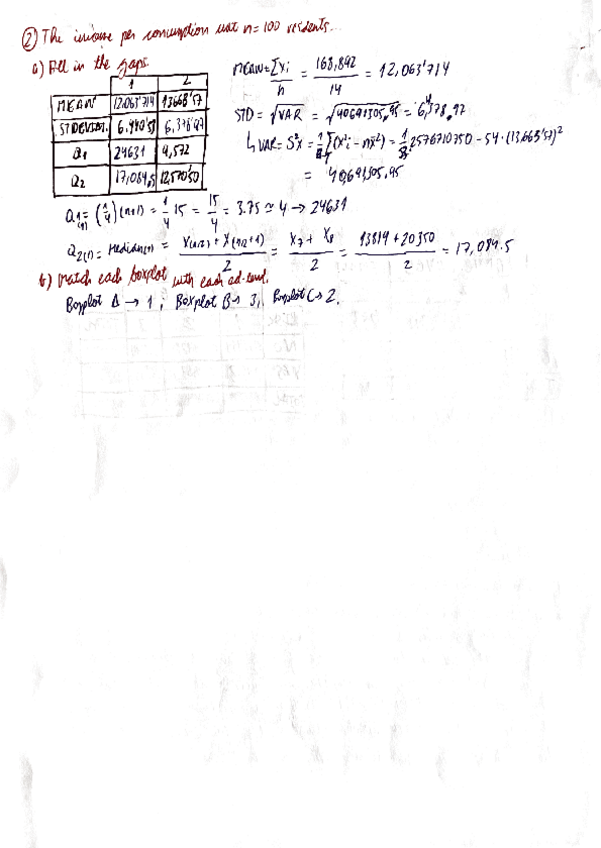 ② The income per consumption unit n=100 residents...
a) Fill in the gaps
1 2
MEAN 12.063'714 13668'57
STDEVIAT. 6.440'51 6,378'97
Q1 24631 9,572
Q2 17,084,5 12,570'50
MEAN = Σxi / n = 168,892 / 14 = 12,063'714
STD = √VAR = √40691305,95 = 6,378,97
↳ VAR = S²x = Σ(x²i - nx̄²) = 2576710750 - 54·(13.663'57)²
= 40,691,305,95
Q1(n) = (1/4)(n+1) = 1/4 15 = 15/4 = 3.75 ≃ 4 → 24631
Q2(n) = Median(n) = X(n/2) + X(n/2+1) / 2 = X7 + X8 / 2 = 13819 + 20350 / 2 = 17,084.5
b) Match each boxplot with each ad-level.
Boxplot A → 1; Boxplot B → 3, Boxplot C → 2.